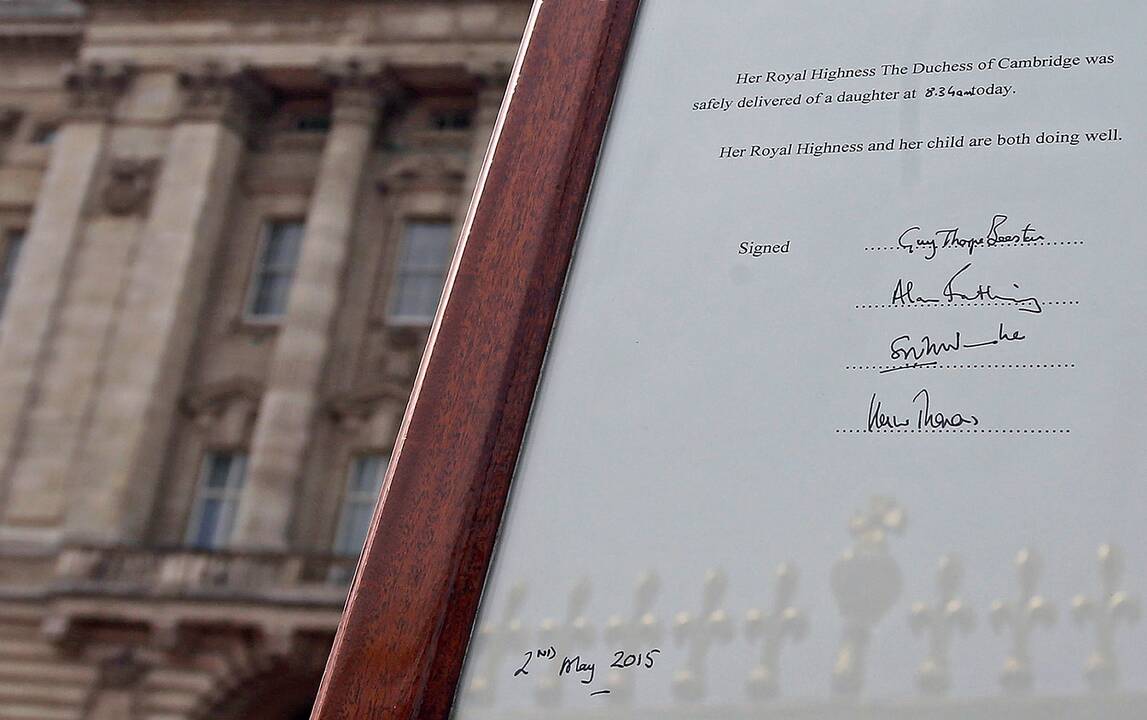 Her Royal Highness The Duchess of Cambridge was
safely delivered of a daughter at 8.34am today.
Her Royal Highness and her child are both doing well.
Signed
Guy Thorpe Beeston
Alan Farthing
2ND May 2015